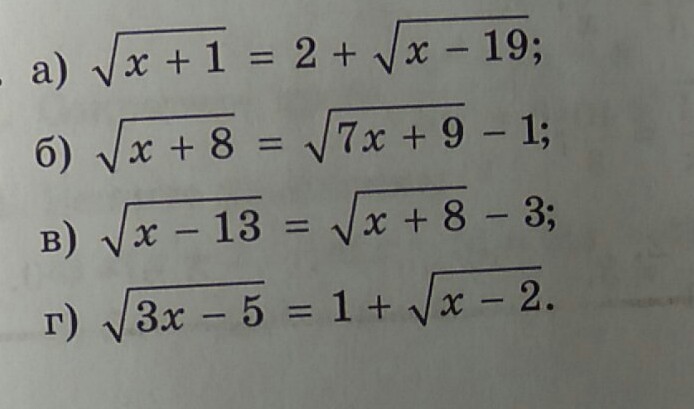 а) √(x + 1) = 2 + √(x − 19);
б) √(x + 8) = √(7x + 9) − 1;
в) √(x − 13) = √(x + 8) − 3;
г) √(3x − 5) = 1 + √(x − 2).